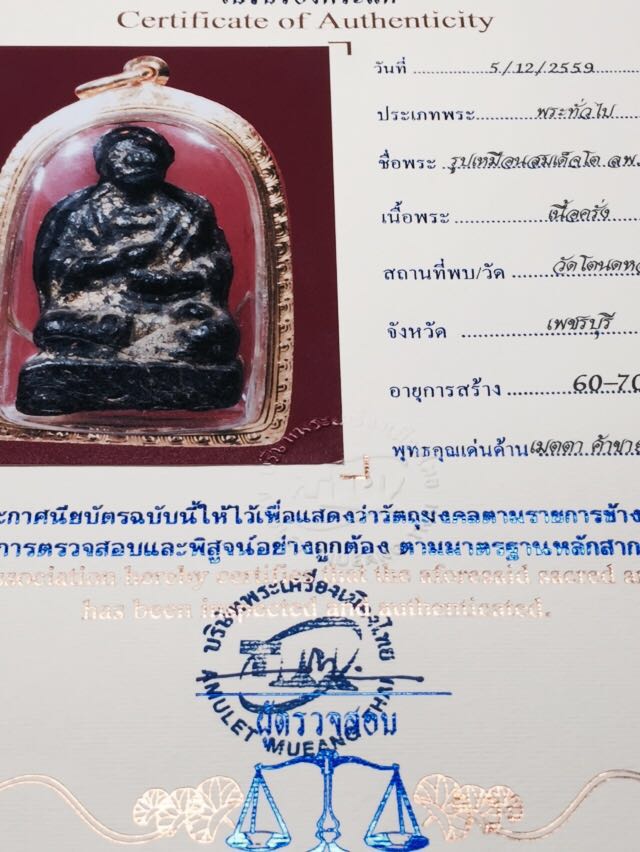 Certificate of Authenticity
วันที่ 5/12/2559
ประเภทพระ พระทั่วไป
ชื่อพระ รูปเหมือนสมเด็จโต ลพ.
เนื้อพระ เนื้อครั่ง
สถานที่พบ/วัด วัดโตนดหล
จังหวัด เพชรบุรี
อายุการสร้าง 60-70
พุทธคุณเด่นด้าน เมตตา ค้าขาย
ะกาศนียบัตรฉบับนี้ให้ไว้เพื่อแสดงว่าวัตถุมงคลตามรายการข้าง
การตรวจสอบและพิสูจน์อย่างถูกต้อง ตามมาตรฐานหลักสาก
ssociation hereby certifies that the aforesaid sacred a
has been inspected and authenticated.
บริษัทพระเครื่องเมืองไทย
ผู้ตรวจสอบ
AMULET MUEANG THAI